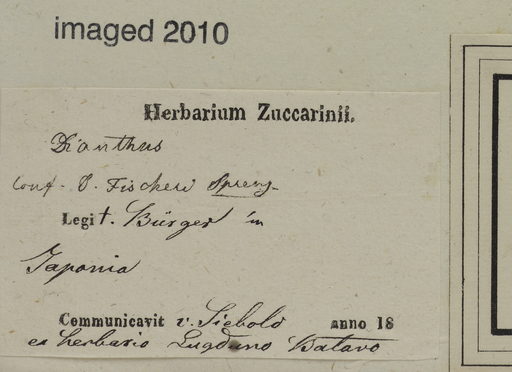 imaged 2010
Herbarium Zuccarinii.
Dianthus
conf. D. Fischeri Spreng.
Legit. Bürger in
Japonia
Communicavit v. Siebold anno 18
ex herbario Lugduno Batavo